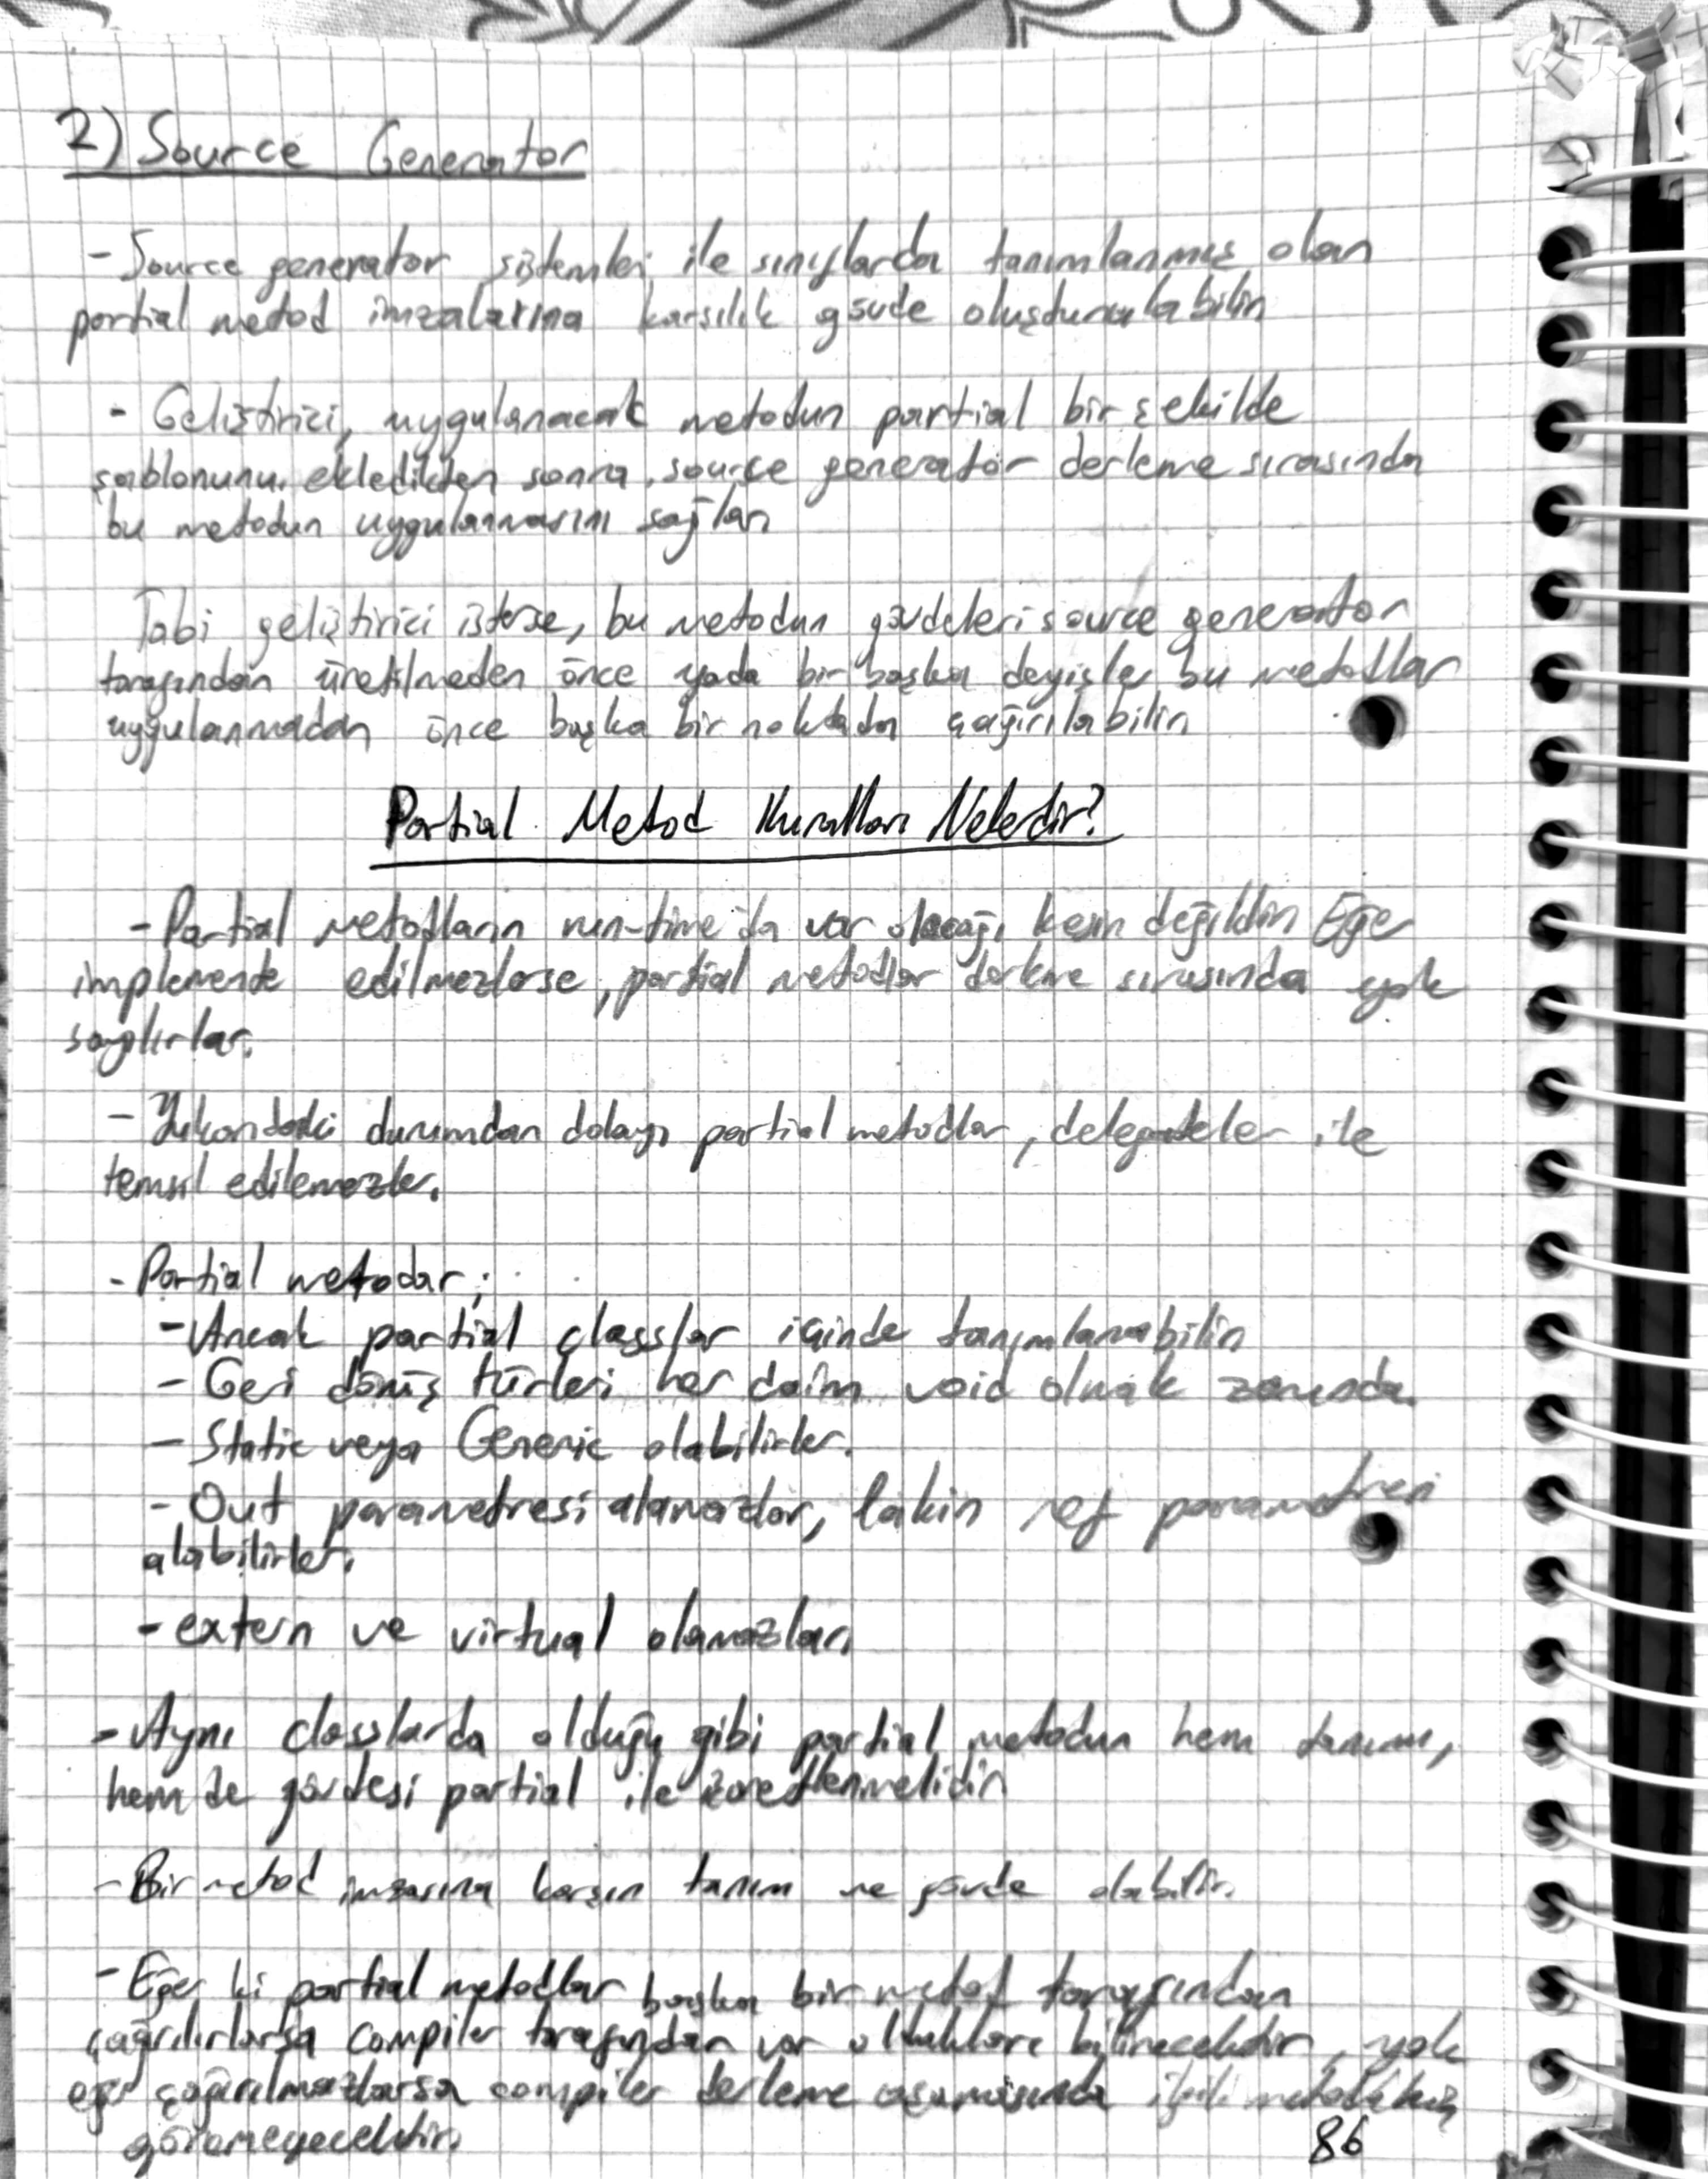 2) Source Generator
- Source generator sistemleri ile sınıflarda tanımlanmış olan
partial metod imzalarına karşılık gövde oluşturulabilir.
- Geliştirici, uygulanacak metodun partial bir şekilde
şablonunu ekledikten sonra, source generator derleme sırasında
bu metodun uygulanmasını sağlar.
Tabi geliştirici isterse, bu metodun gövdeleri source generator
tarafından üretilmeden önce yada bir başka deyişle bu metotlar
uygulanmadan önce başka bir noktada çağırılabilir.
Partial Metod Kuralları Nelerdir?
- Partial metodların run-time'da var olacağı kesin değildir. Eğer
implemente edilmezlerse, partial metodlar derleme sırasında yok
sayılırlar.
- Yukarıdaki durumdan dolayı partial metodlar, delegateler ile
temsil edilemezler.
- Partial metodar;
- Ancak partial classlar içinde tanımlanabilir.
- Geri dönüş türleri her daim void olmak zorunda.
- Static veya Generic olabilirler.
- Out parametresi alamazlar, lakin ref parametresi
alabilirler.
- extern ve virtual olamazlar.
- Aynı classlarda olduğu gibi partial metodun hem tanımı,
hem de gövdesi partial ile işaretlenmelidir.
- Bir metod imzasına karşın tanım ve gövde olabilir.
- Eğer ki partial metodlar başka bir metot tarafından
çağırılırlarsa compiler tarafından var oldukları bilinecektir, yok
eğer çağırılmazlarsa compiler derleme aşamasında ilgili metodu hiç
görmeyecektir.
86